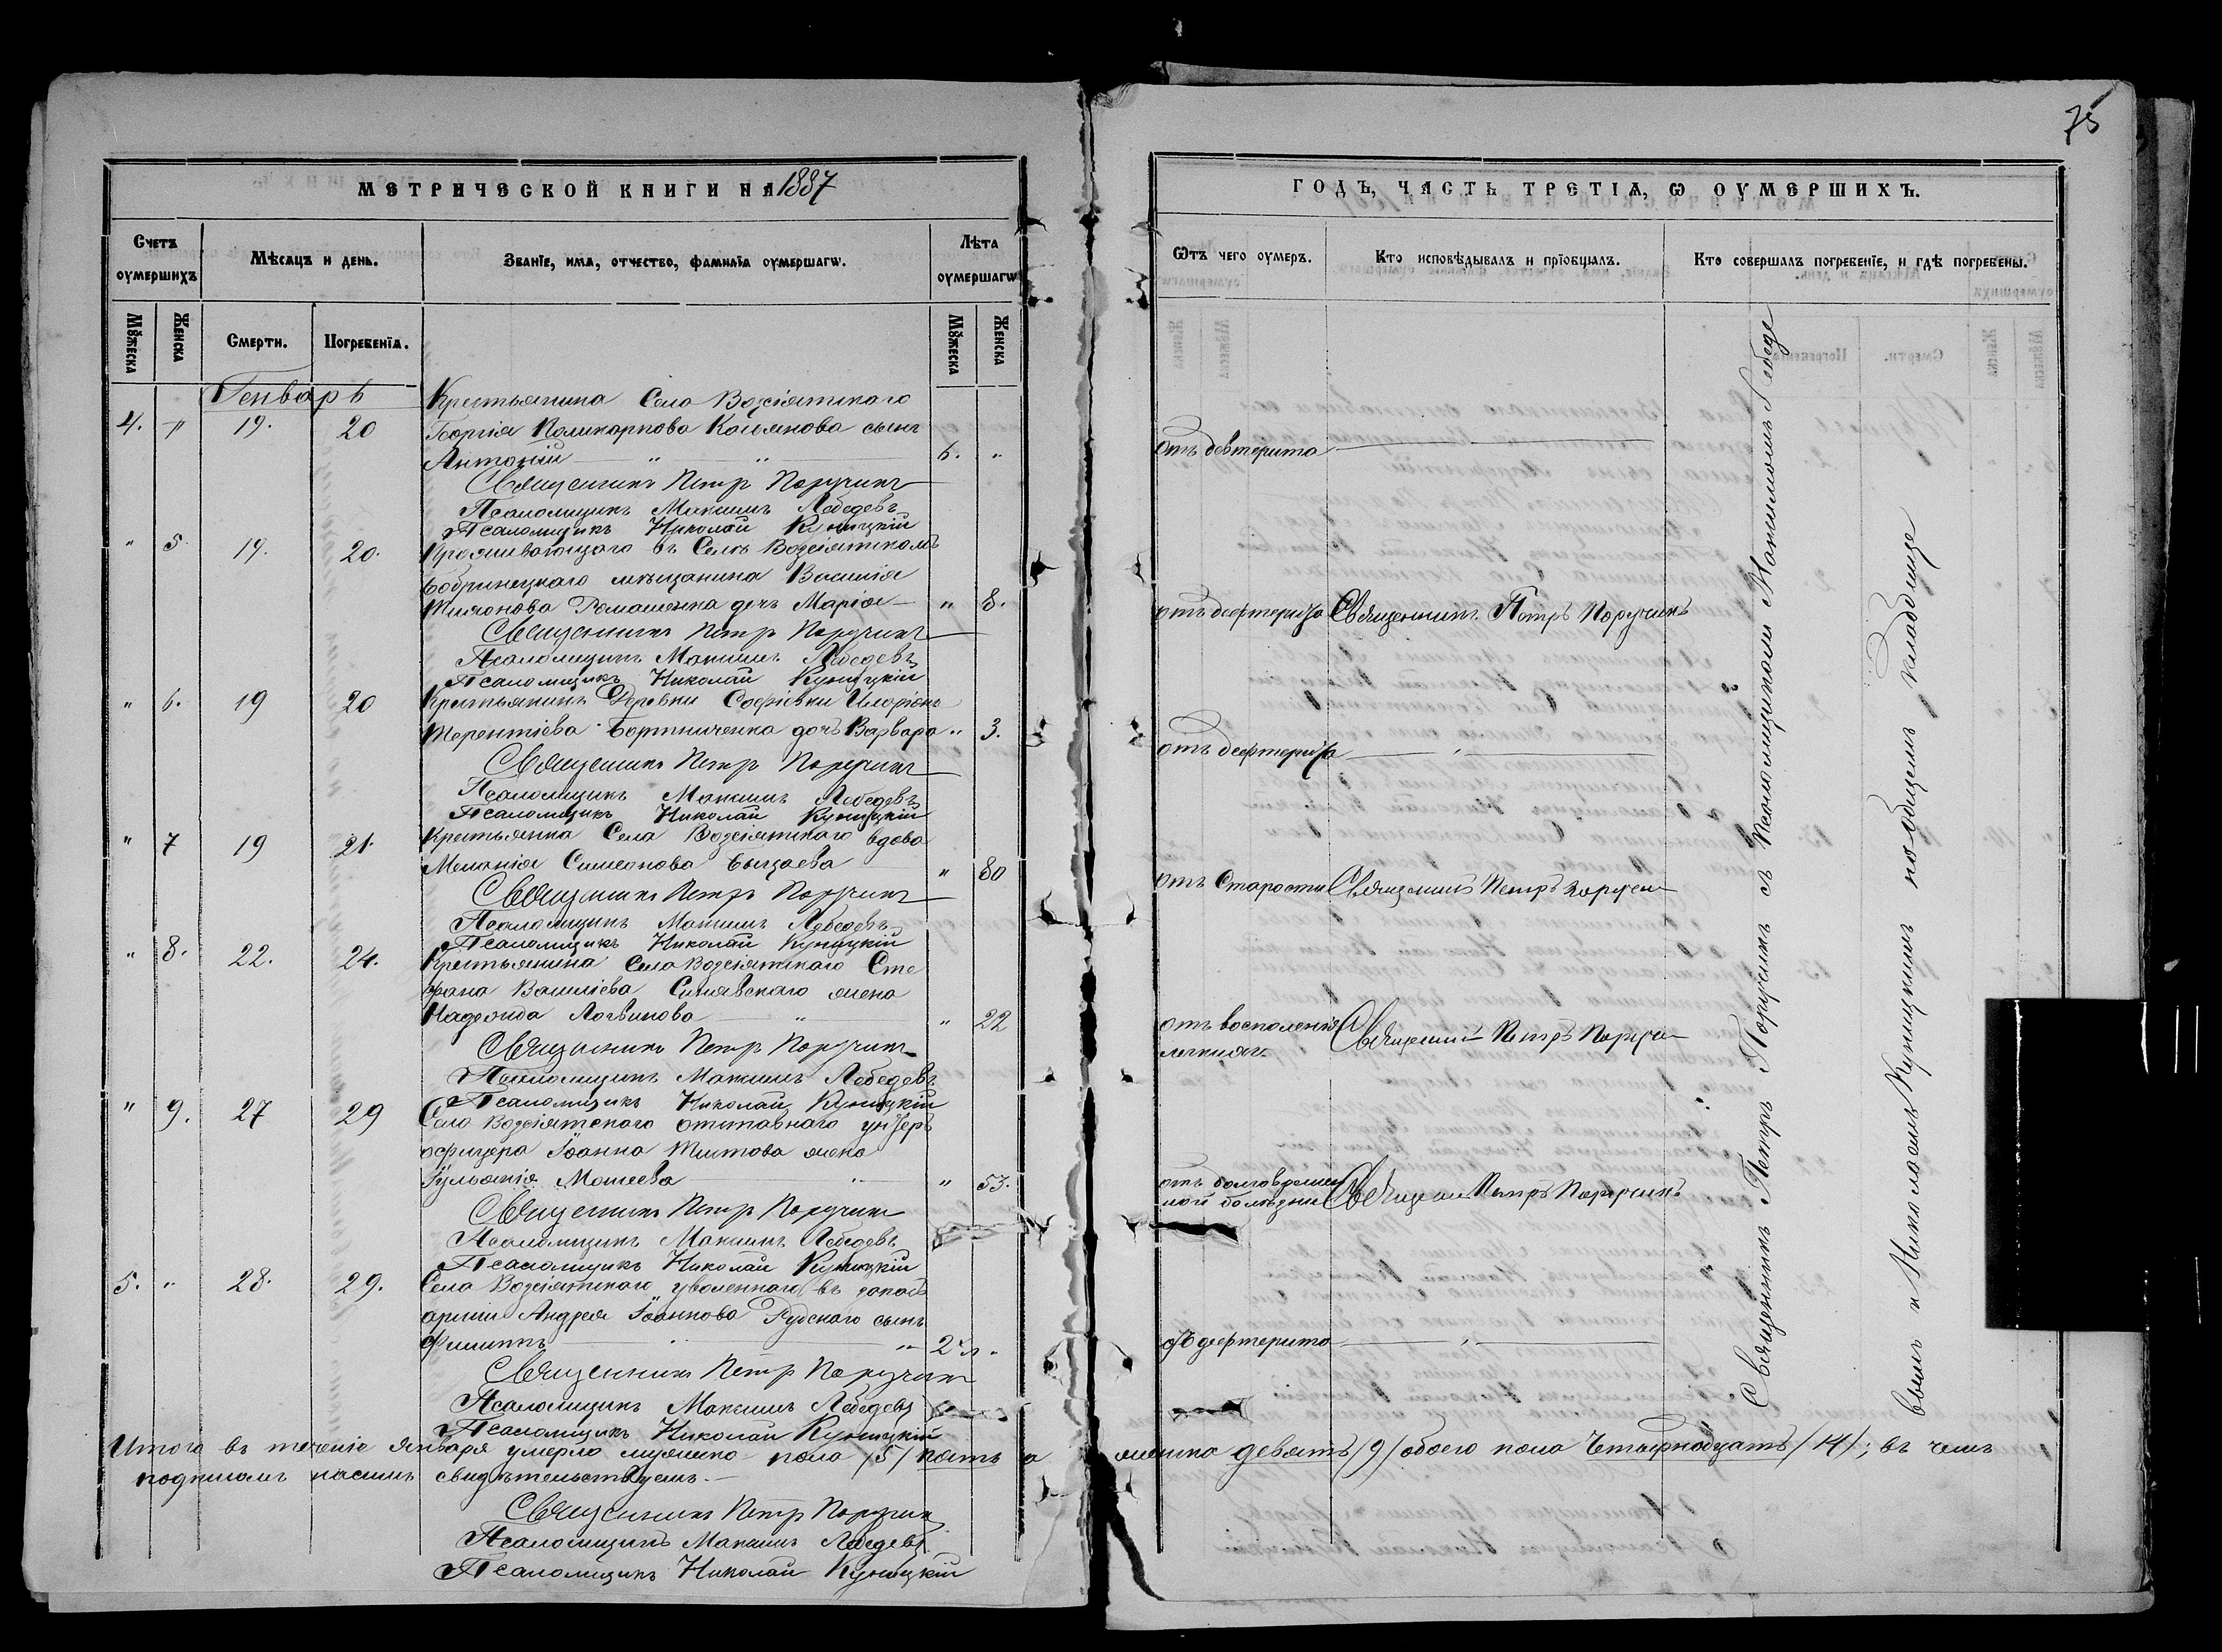 МЕТРИЧЕСКОЙ КНИГИ НА 1887
Счетъ оумершихъ
Мѣсяцъ и день.
Званїе, имя, отчество, фамилїа оумершагѡ.
Лѣта оумершагѡ
Мꙋжеска
Женска
Смерти.
Погребенїя.
Мꙋжеска
Женска
Генварь
Крестьянина Села Возсіятскаго
4. " 19. 20 Георгія Поликарпова Касьянова сынъ
Антоній " " 6. "
Священникъ Петръ Поручикъ
Псаломщикъ Максимъ Лебедевъ
Псаломщикъ Николай Куницкій
" 5 19. 20. Проживающаго въ Селѣ Возсіятскомъ
Бобринецкаго мѣщанина Василія
Тимонова Ромашенка дочь Марія " 8.
Священникъ Петръ Поручикъ
Псаломщикъ Максимъ Лебедевъ
Псаломщикъ Николай Куницкій
" 6. 19 20 Крестьянинъ Деревни Софіевки Иларіона
Терентіева Бортниченка дочь Варвара " 3.
Священникъ Петръ Поручикъ
Псаломщикъ Максимъ Лебедевъ
Псаломщикъ Николай Куницкій
" 7 19 21. Крестьянка Села Возсіятскаго вдова
Меланія Симеонова " 80
Священникъ Петръ Поручикъ
Псаломщикъ Максимъ Лебедевъ
Псаломщикъ Николай Куницкій
" 8. 22. 24. Крестьянина Села Возсіятскаго Сте
фана Василіева Синявскаго жена
Надежда Логвинова " " 22
Священникъ Петръ Поручикъ
Псаломщикъ Максимъ Лебедевъ
Псаломщикъ Николай Куницкій
" 9. 27 29 Села Возсіятскаго отставнаго унтеръ
офицера Іоанна Титова жена
Іуліанія Моисеева " " 53.
Священникъ Петръ Поручикъ
Псаломщикъ Максимъ Лебедевъ
Псаломщикъ Николай Куницкій
5. " 28. 29. Села Возсіятскаго уволеннаго въ запасъ
арміи Андрея Іоаннова Рудскаго сынъ
Филиппъ " " 2 "
Священникъ Петръ Поручикъ
Псаломщикъ Максимъ Лебедевъ
Псаломщикъ Николай Куницкій
Итого въ теченіе Января умерло мужеска пола /5/ пять а
подписомъ нашимъ свидѣтельствуемъ.
Священникъ Петръ Поручикъ
Псаломщикъ Максимъ Лебедевъ
Псаломщикъ Николай Куницкій
75
ГОДЪ, ЧАСТЬ ТРЕТІѦ, Ѡ ОУМЕРШИХЪ.
Ѿтъ чего оумеръ.
Кто исповѣдывалъ и прїобщалъ.
Кто совершалъ погребенїе, и гдѣ погребены.
отъ девтерита
отъ дефтерита Священникъ Петръ Поручикъ
отъ дефтерита "
отъ Старости Священникъ Петръ Поручи
отъ воспаленія
легкихъ Священни Петръ Поручи
отъ долговремен
ной болѣзни Священ Петръ Поручикъ
отъ дефтерита "
Священникъ Петръ Поручикъ съ Псаломщиками Максимомъ Лебеде
вымъ и Николаемъ Куницкимъ на общемъ кладбище
женска девять /9/ обоего пола Четырнадцать /14/; въ чемъ